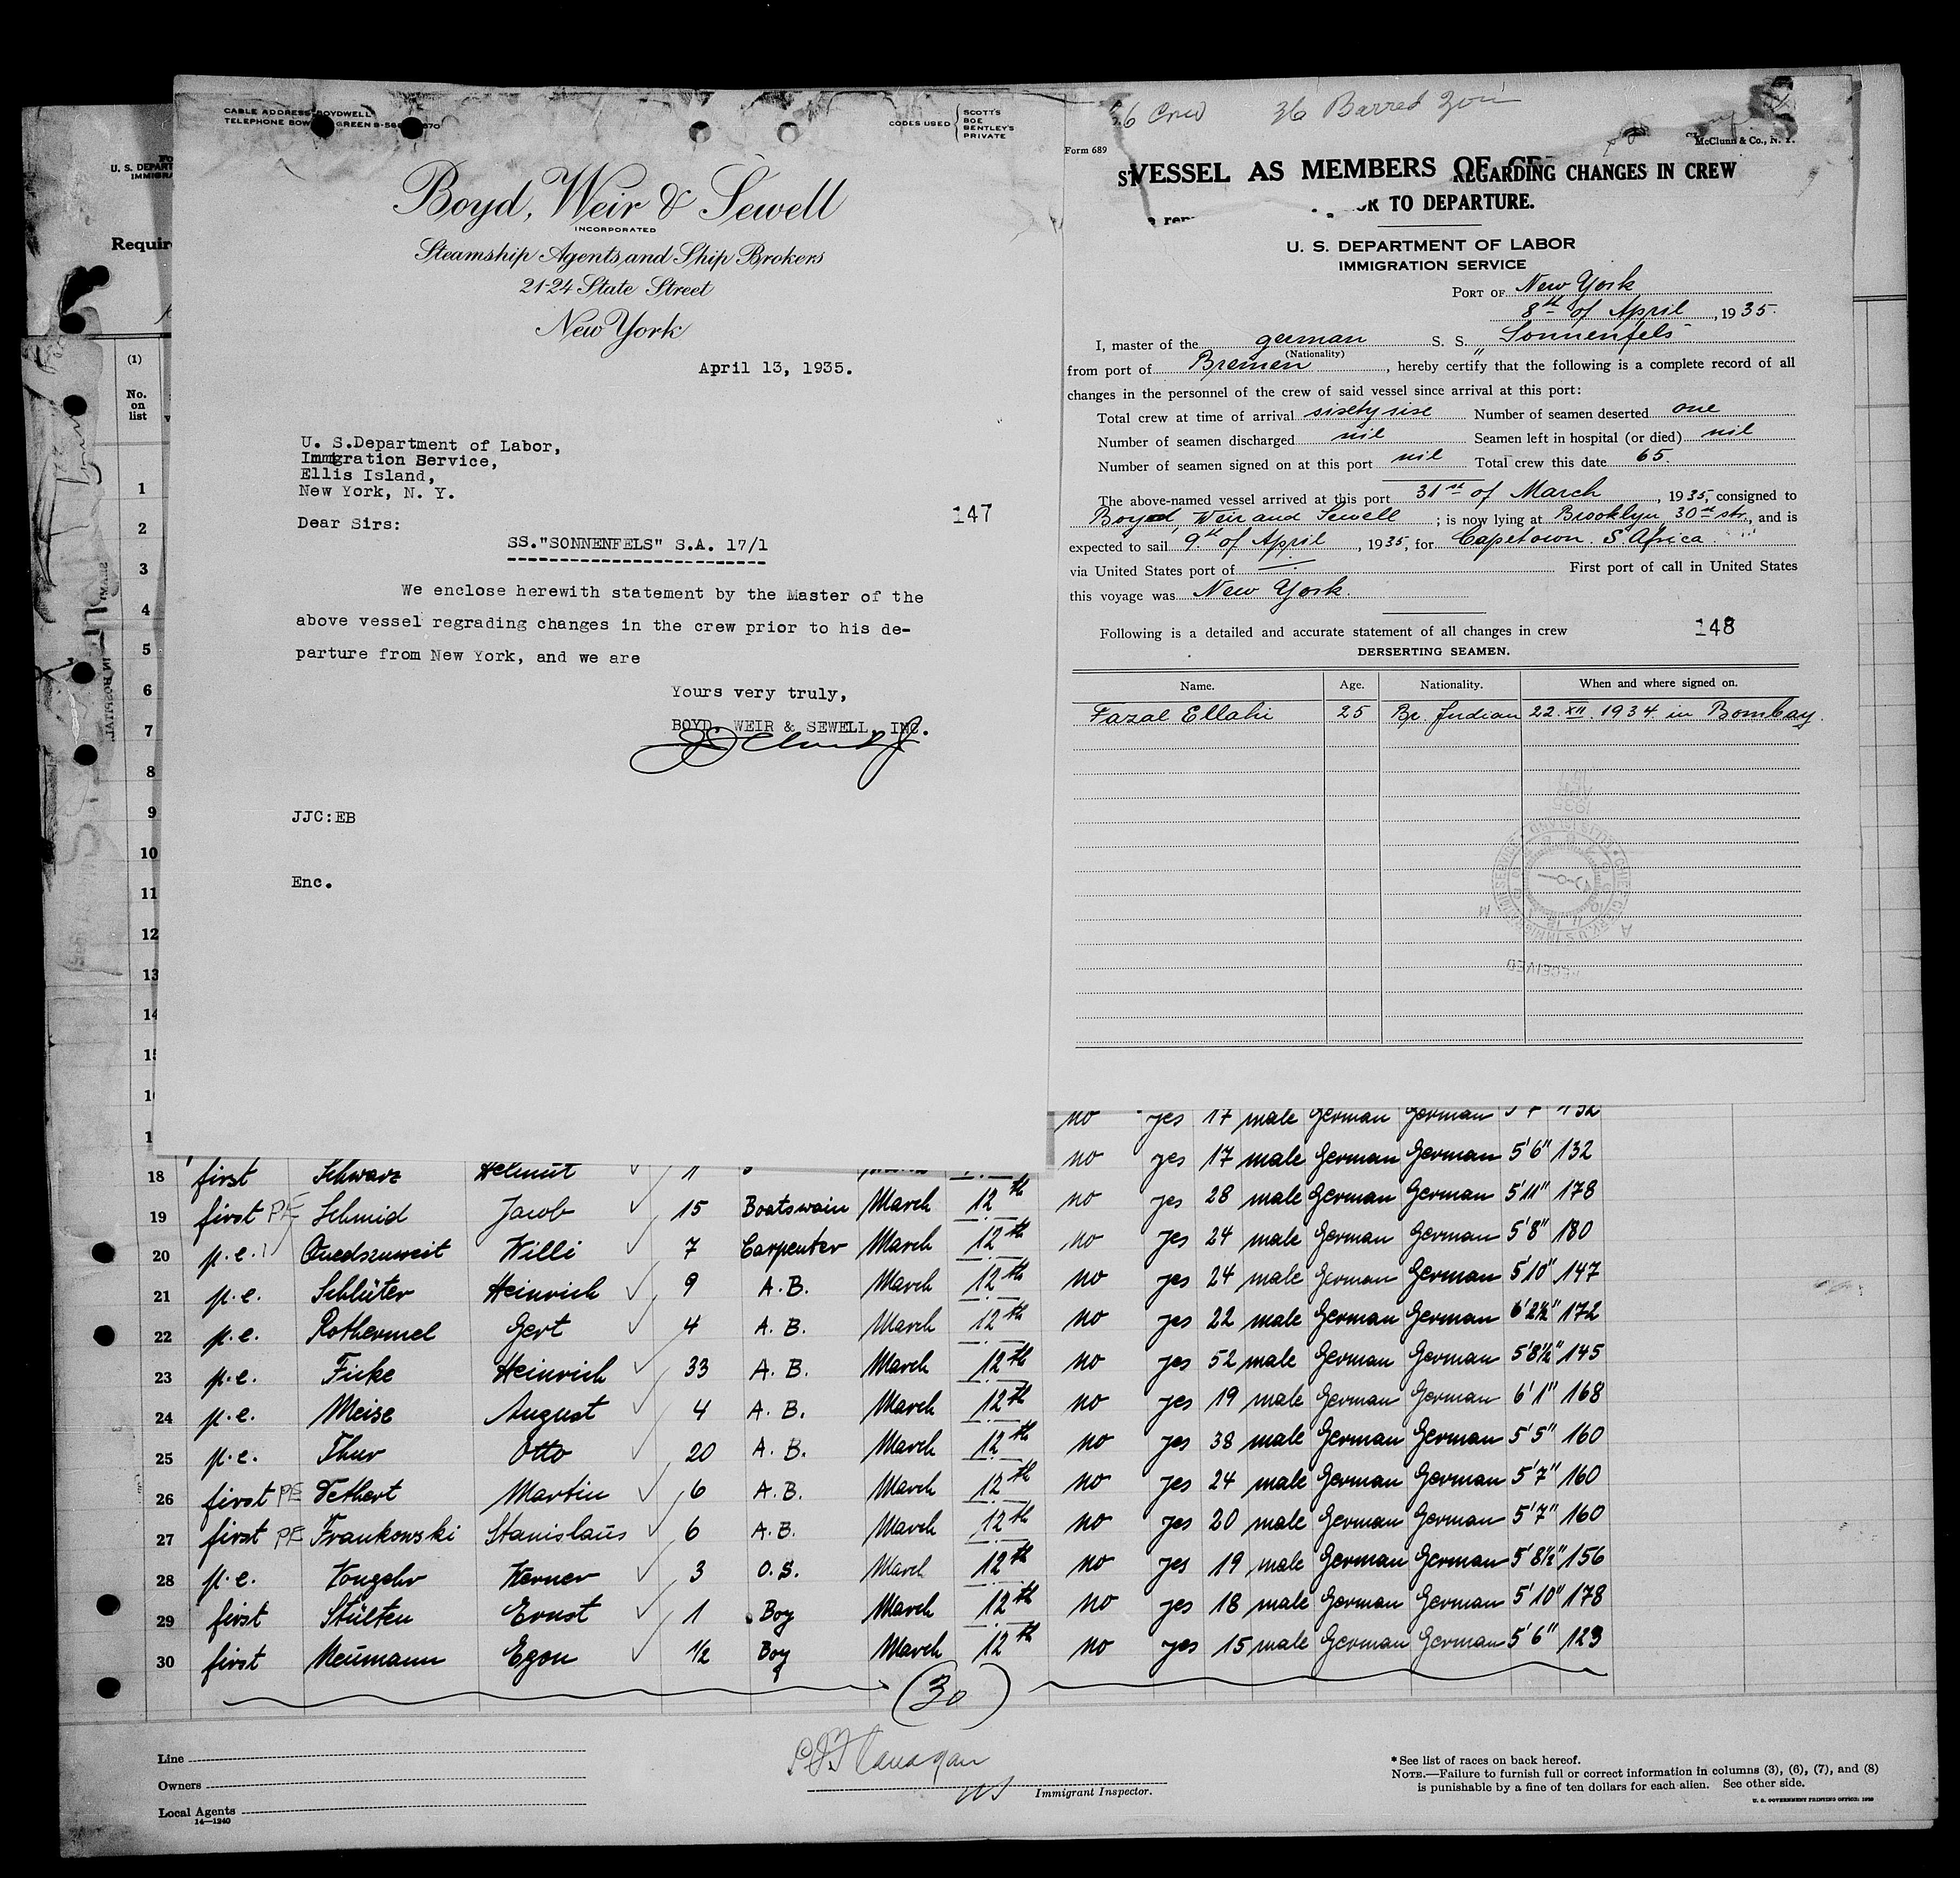 CABLE ADDRESS BOYDWELL
TELEPHONE BOW GREEN 9-56 670
CODES USED
SCOTT'S
BOE
BENTLEY'S
PRIVATE
Boyd, Weir & Sewell
INCORPORATED
Steamship Agents and Ship Brokers
21-24 State Street
New York
April 13, 1935.
U. S.Department of Labor,
Immgration Service,
Ellis Island,
New York, N. Y.
147
Dear Sirs:
SS."SONNENFELS" S.A. 17/1
We enclose herewith statement by the Master of the
above vessel regrading changes in the crew prior to his de-
parture from New York, and we are
Yours very truly,
BOYD, WEIR & SEWELL, INC.
JJC:EB
Enc.
Crew 36 Barred Zone
Form 689
McClunn & Co., N. Y.
VESSEL AS MEMBERS OF
REGARDING CHANGES IN CREW
TO DEPARTURE.
U. S. DEPARTMENT OF LABOR
IMMIGRATION SERVICE
PORT OF New York
8th of April, 1935.
I, master of the german S. S. "Sonnenfels"
(Nationality)
from port of Bremen, hereby certify that the following is a complete record of all
changes in the personnel of the crew of said vessel since arrival at this port:
Total crew at time of arrival sixty six Number of seamen deserted one
Number of seamen discharged nil Seamen left in hospital (or died) nil
Number of seamen signed on at this port nil Total crew this date 65.
The above-named vessel arrived at this port 31st of March, 1935, consigned to
Boyd, Weir and Sewell; is now lying at Brooklyn 30th str., and is
expected to sail 9th of April, 1935, for Capetown. S. Africa
via United States port of — First port of call in United States
this voyage was New York.
Following is a detailed and accurate statement of all changes in crew 148
DERSERTING SEAMEN.
Name. Age. Nationality. When and where signed on.
Fazal Ellahi 25 Br. Indian 22. XII. 1934 in Bombay.
RECEIVED
U. S. DEPART
IMMIGRA
Requir
(1)
No.
on
list
1
2
3
4
5
6
7
8
9
10
11
12
13
14
no yes 17 male German German 132
18 first Schwarz Helmut 1 no yes 17 male German German 5'6" 132
19 first PE Schmid Jacob 15 Boatswain March 12th no yes 28 male German German 5'11" 178
20 p.e. Quedszuweit Willi 7 Carpenter March 12th no yes 24 male German German 5'8" 180
21 p.e. Schlüter Heinrich 9 A.B. March 12th no yes 24 male German German 5'10" 147
22 p.e. Rothermel Gert 4 A.B. March 12th no yes 22 male German German 6'2½" 172
23 p.e. Ficke Heinrich 33 A.B. March 12th no yes 52 male German German 5'8½" 145
24 p.e. Meise August 4 A.B. March 12th no yes 19 male German German 6'1" 168
25 p.e. Thur Otto 20 A.B. March 12th no yes 38 male German German 5'5" 160
26 first PE Dethert Martin 6 A.B. March 12th no yes 24 male German German 5'7" 160
27 first PE Frankowski Stanislaüs 6 A.B. March 12th no yes 20 male German German 5'7" 160
28 p.e. Vongehr Werner 3 O.S. March 12th no yes 19 male German German 5'8½" 156
29 first Stülten Ernst 1 Boy March 12th no yes 18 male German German 5'10" 178
30 first Neümann Egon ½ Boy March 12th no yes 15 male German German 5'6" 123
(30)
Line
Owners
Local Agents
14—1240
P J Flanagan
Immigrant Inspector.
*See list of races on back hereof.
NOTE.—Failure to furnish full or correct information in columns (3), (6), (7), and (8)
is punishable by a fine of ten dollars for each alien. See other side.
U. S. GOVERNMENT PRINTING OFFICE: 1929